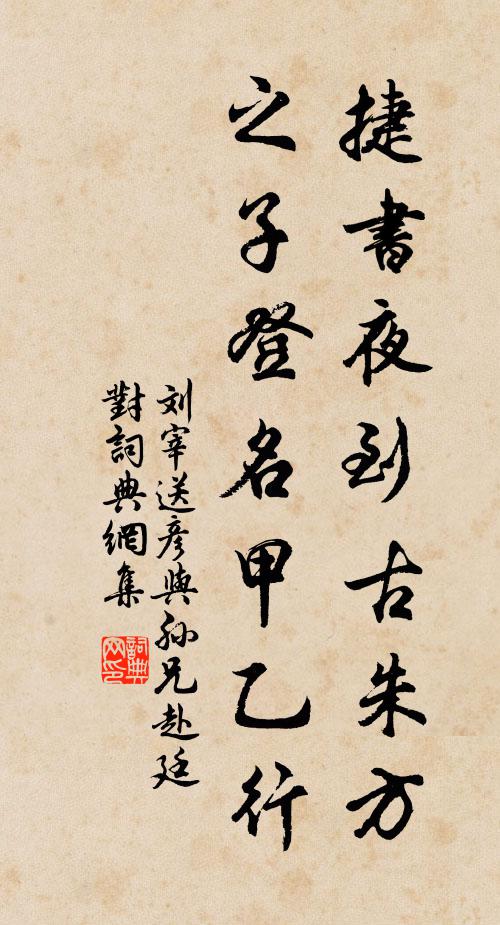 捷書夜到古朱方
之子登名甲乙行
刘宰送彦與孙兄赴廷
對詞典網集
詞典
网印